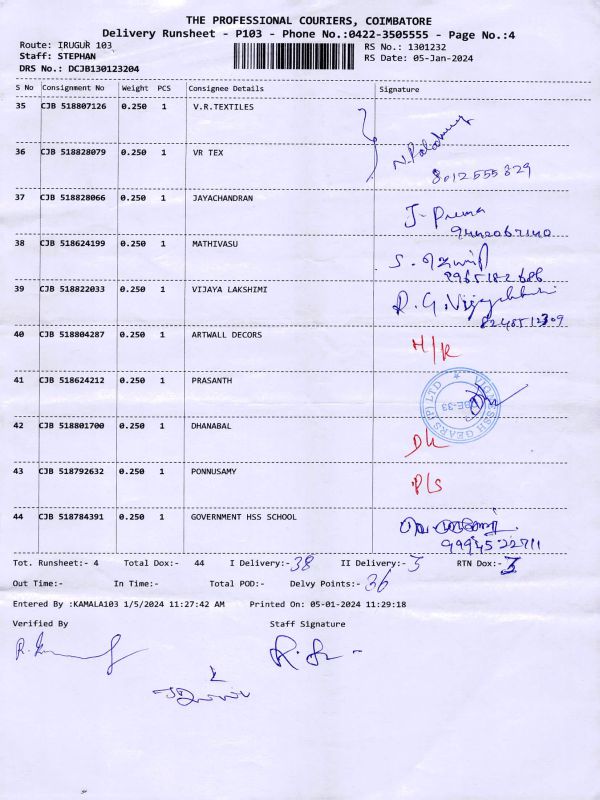 THE PROFESSIONAL COURIERS, COIMBATORE
Delivery Runsheet - P103 - Phone No.:0422-3505555 - Page No.:4
Route: IRUGUR 103 RS No.: 1301232
Staff: STEPHAN RS Date: 05-Jan-2024
DRS No.: DCJB130123204
S No Consignment No Weight PCS Consignee Details Signature
35 CJB 518807126 0.250 1 V.R.TEXTILES
36 CJB 518828079 0.250 1 VR TEX
8012555829
37 CJB 518828066 0.250 1 JAYACHANDRAN J- Prema
9442067140
38 CJB 518624199 0.250 1 MATHIVASU
39 CJB 518822033 0.250 1 VIJAYA LAKSHIMI
40 CJB 518804287 0.250 1 ARTWALL DECORS H/R
41 CJB 518624212 0.250 1 PRASANTH
VIGNESSH GEARS (P) LTD
42 CJB 518801700 0.250 1 DHANABAL
43 CJB 518792632 0.250 1 PONNUSAMY P/S
44 CJB 518784391 0.250 1 GOVERNMENT HSS SCHOOL
Tot. Runsheet:- 4 Total Dox:- 44 I Delivery:- 38 II Delivery:- 3 RTN Dox:- 3
Out Time:- In Time:- Total POD:- Delvy Points:- 36
Entered By :KAMALA103 1/5/2024 11:27:42 AM Printed On: 05-01-2024 11:29:18
Verified By Staff Signature